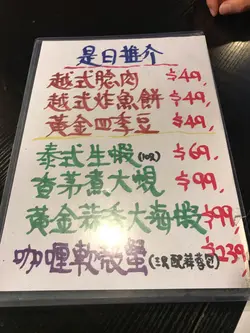 是日推介
越式腍肉 $49,
越式炸魚餅 $49,
黃金四季豆 $49,
泰式生蝦(10只) $69,
香茅煮大蜆 $99,
黃金蒜香大海蝦 $99,
咖喱軟殼蟹(三只配蒜蓉包) $239,